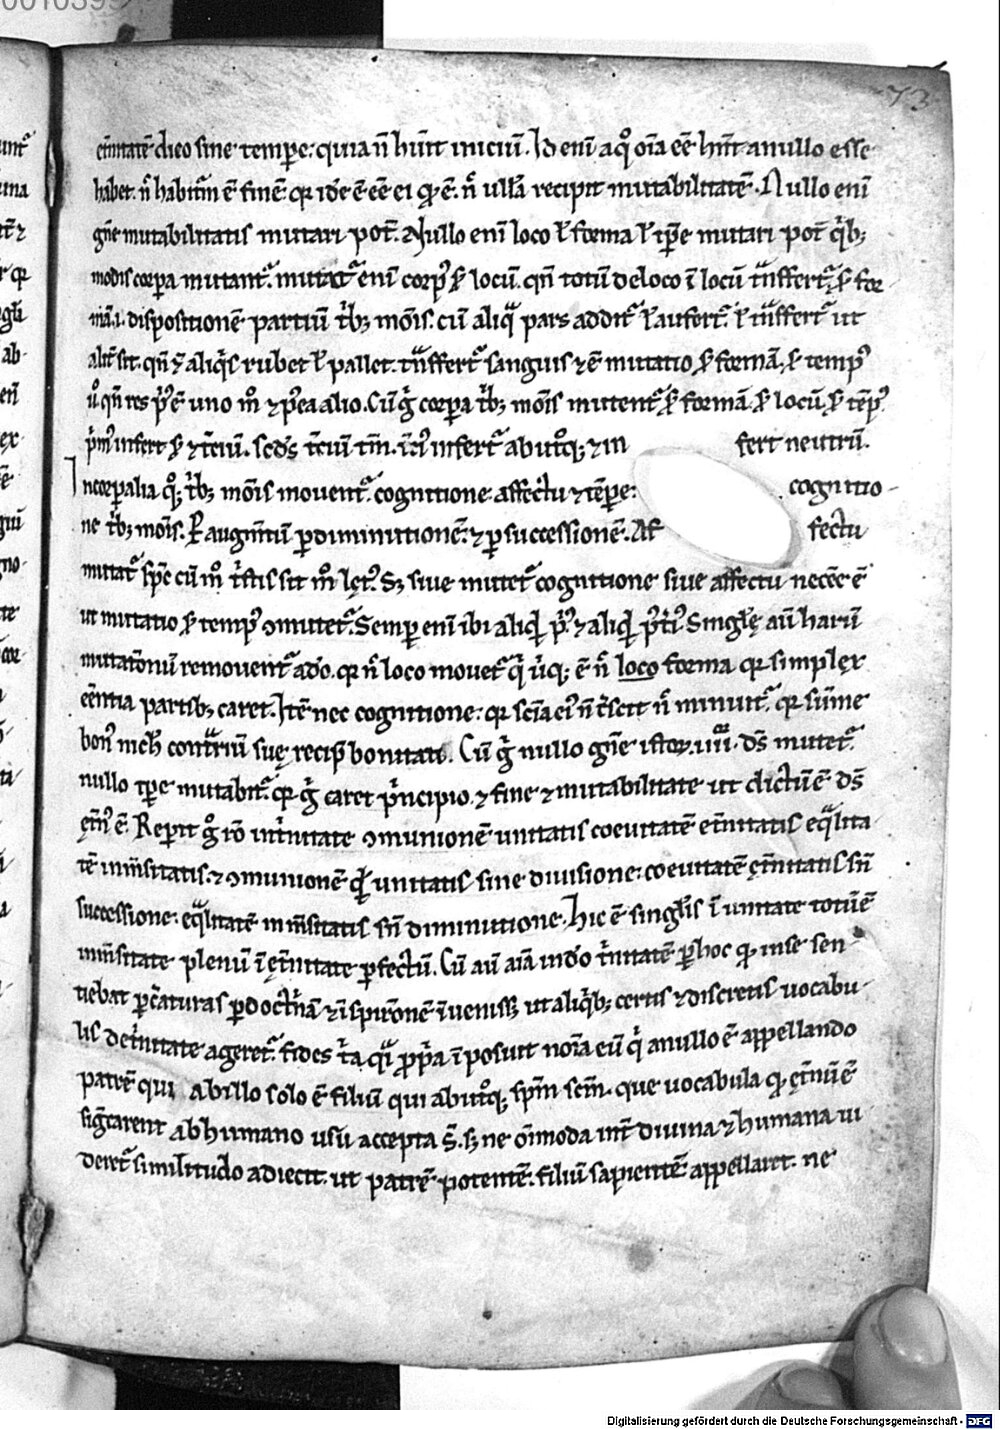 73
et̄nitatē dico sine tempore: quia n̄ hūit iniciū. Id enī a qͦ oīa eē hn̄t a nullo esse
habet. n̄ habitm̄ ē finē qr idē ē eē ei qd ē. n̄ ullā recipit mutabilitatē. Nullo enī
gn̄e mutabilitatis mutari pot̄. Nullo enī loco ł forma ł tp̄e mutari pot̄ qͥbꝫ
modis corpa mutant᷑. mutat᷑ enī corpꝰ scd̄ locū. qn̄ totū de loco ī locū tͣnsfert᷑. scd̄ for
mā .i. dispositionē partiū tͥbꝫ mōis. cū aliqͣ pars addit᷑ ł aufert᷑. ł tͣnsfert᷑ ut
qn̄ aliqͥs rubet ł pallet. tͣnsfert᷑ sanguis ⁊ ē mutatio scd̄ formā. scd̄ tempꝰ
ů qn̄ res pͥꝰ ē uno mͦ ⁊ pꝰea alio. Cū gͦ corpa tͥbꝫ mōis mutent᷑ scd̄ formā. scd̄ locū. scd̄ tēpꝰ.
pͥmꝰ infert scd̄ ⁊ t̄ciū. scdꝰ t̄ciū tm̄. t̄ciꝰ infert᷑ ab utͦqꝫ ⁊ in fert neutrū.
Incorpalia qͦqꝫ tͥbꝫ mōis movent᷑. cognitione affectu ⁊ tēpe: cognitio
ne tͥbꝫ mōis. Per augm̄tū per diminutionē. ⁊ per successionē. Af fectu
mutat᷑ sp̄c cū mͦ tͥstis sit mͦ lętꝰ. Sꝫ sive mutet᷑ cognitione sive affectu necēe ē
ut mutatio scd̄ tempꝰ ꝯmutet᷑. Semper enī ibi aliqͥd pͥꝰ ⁊ aliqͥd pꝰtiꝰ. Singlę aū harū
mutatōnū removent᷑ a dō. qr n̄ loco movet᷑ qͥ ubiqꝫ ē n̄ loco forma qr simplex
eēntia partibꝫ caret. Itē nec cognitione: qr scīa eiꝰ n̄ cͥscit n̄ minuit᷑. qr sūme
bonꝰ nichil contͣriū suę recipit bonitati. Cū gͦ nullo gn̄e istoꝝ .iiii. ds̄ mutet᷑
nullo tp̄e mutabit᷑. qr gͦ caret pͥncipio. ⁊ fine ⁊ mutabilitate ut dictū ē ds̄
ęt̄nꝰ ē. Repit gͦ rō in tͥnitate ꝯmunionē unitatis coevitatē et̄nitatis eqͣlita
tē inm̄sitatis. ⁊ ꝯmunionē qͥdē unitatis sine divisione: coevitatē ęt̄nitatis sn̄
successione: eqͣlitatē inm̄sitatis sn̄ diminutione. Hic ē singlis ī unitate totū ē
inm̄sitate plenū ī ęt̄nitate perfectū. Cū aū aīa in dō tͥnitatē per hoc qd in se sen
tiebat per cͥaturas per doctͥnā ⁊ īspirōnē īvenissꝫ ut aliqͥbꝫ certis ⁊ discretis vocabu
lis de tͥnitate ageret᷑. fides tͥa qͣsi propͥa īposuit nōīa eū qͥ a nullo ē appellando
patrē qui ab illo solo ē filiū qui ab utͦqꝫ spm̄ scm̄. que vocabula qd ęt̄nū ē
sig̃carent ab humano usu accepta sꝫ ne om̄moda int̄ divina ⁊ humana vi
deret᷑ similitudo adiecit. ut patrē potentē. filiū sapientē appellaret. ne
Digitalisierung gefördert durch die Deutsche Forschungsgemeinschaft - DFG